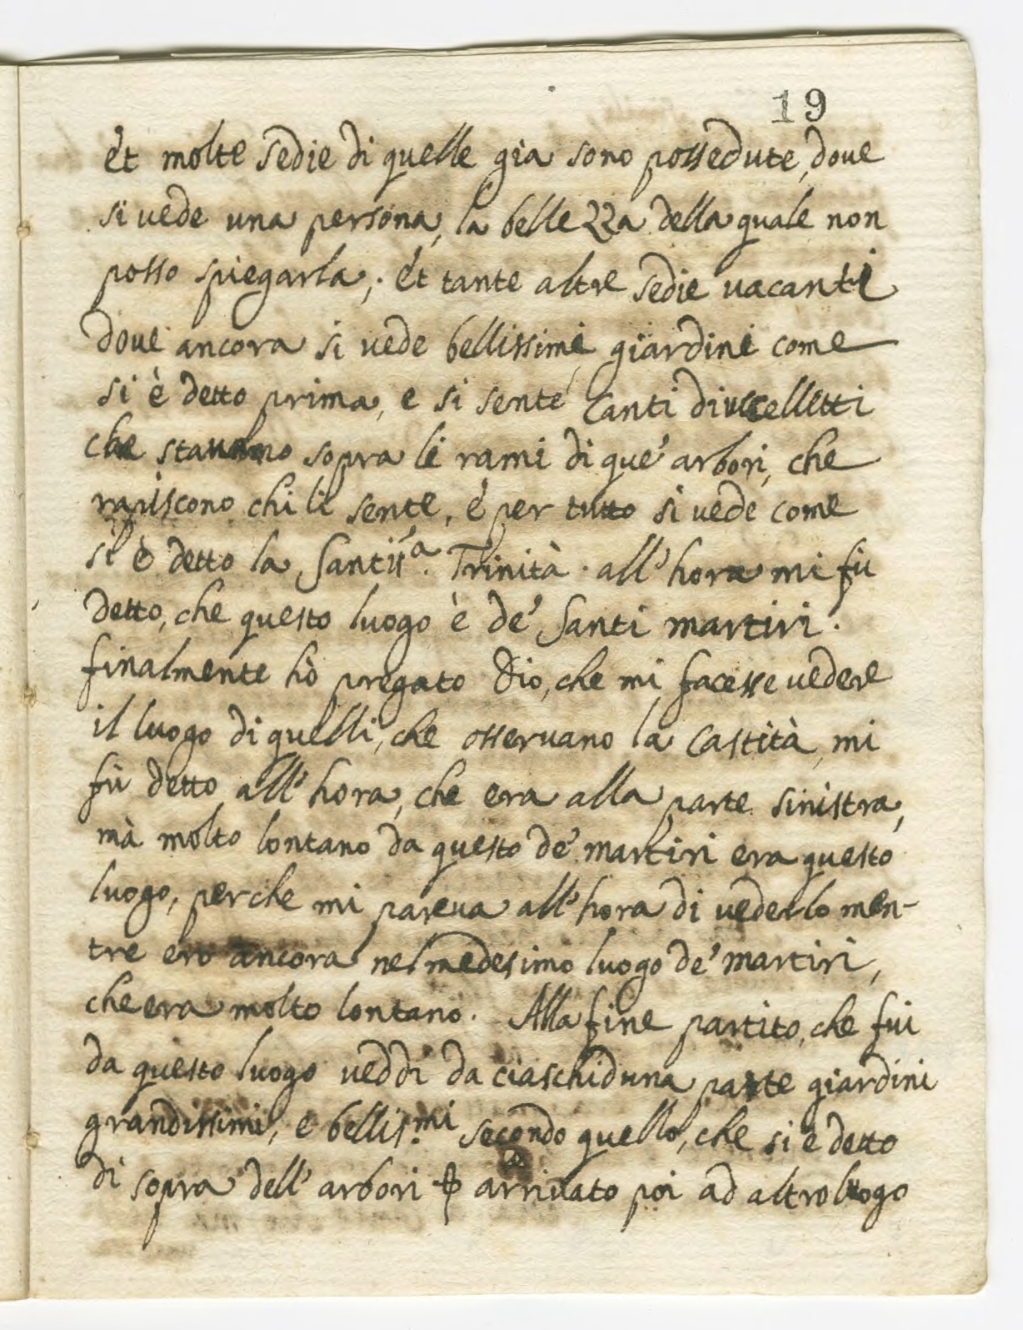 19
èt molte sedie di quelle gia sono possedute, doue
si uede una persona, la bellezza della quale non
posso spiegarla; èt tante altre sedie uacanti
doue ancora si uede bellissimi giardini come
si è detto prima, e si sente Canti di uccelletti
che stanno sopra li rami di que' arbori, che
rapiscono chi li sente, e per tutto si uede come
si è detto la Santiss.a Trinità. all'hora mi fù
detto, che questo luogo è de' Santi martiri.
finalmente hò pregato Dio, che mi facesse uedere
il luogo di quelli, che osseruano la Castità, mi
fù detto all'hora, che era alla parte sinistra,
mà molto lontano da questo de' martiri era questo
luogo, perche mi pareua all'hora di uederlo men-
tre ero ancora nel medesimo luogo de' martiri,
che era molto lontano. Alla fine partito, che fui
da questo luogo ueddi da ciaschiduna parte giardini
grandissimi, e bellis.mi secondo quello, che si è detto
di sopra dell'arbori arriuato poi ad altro luogo